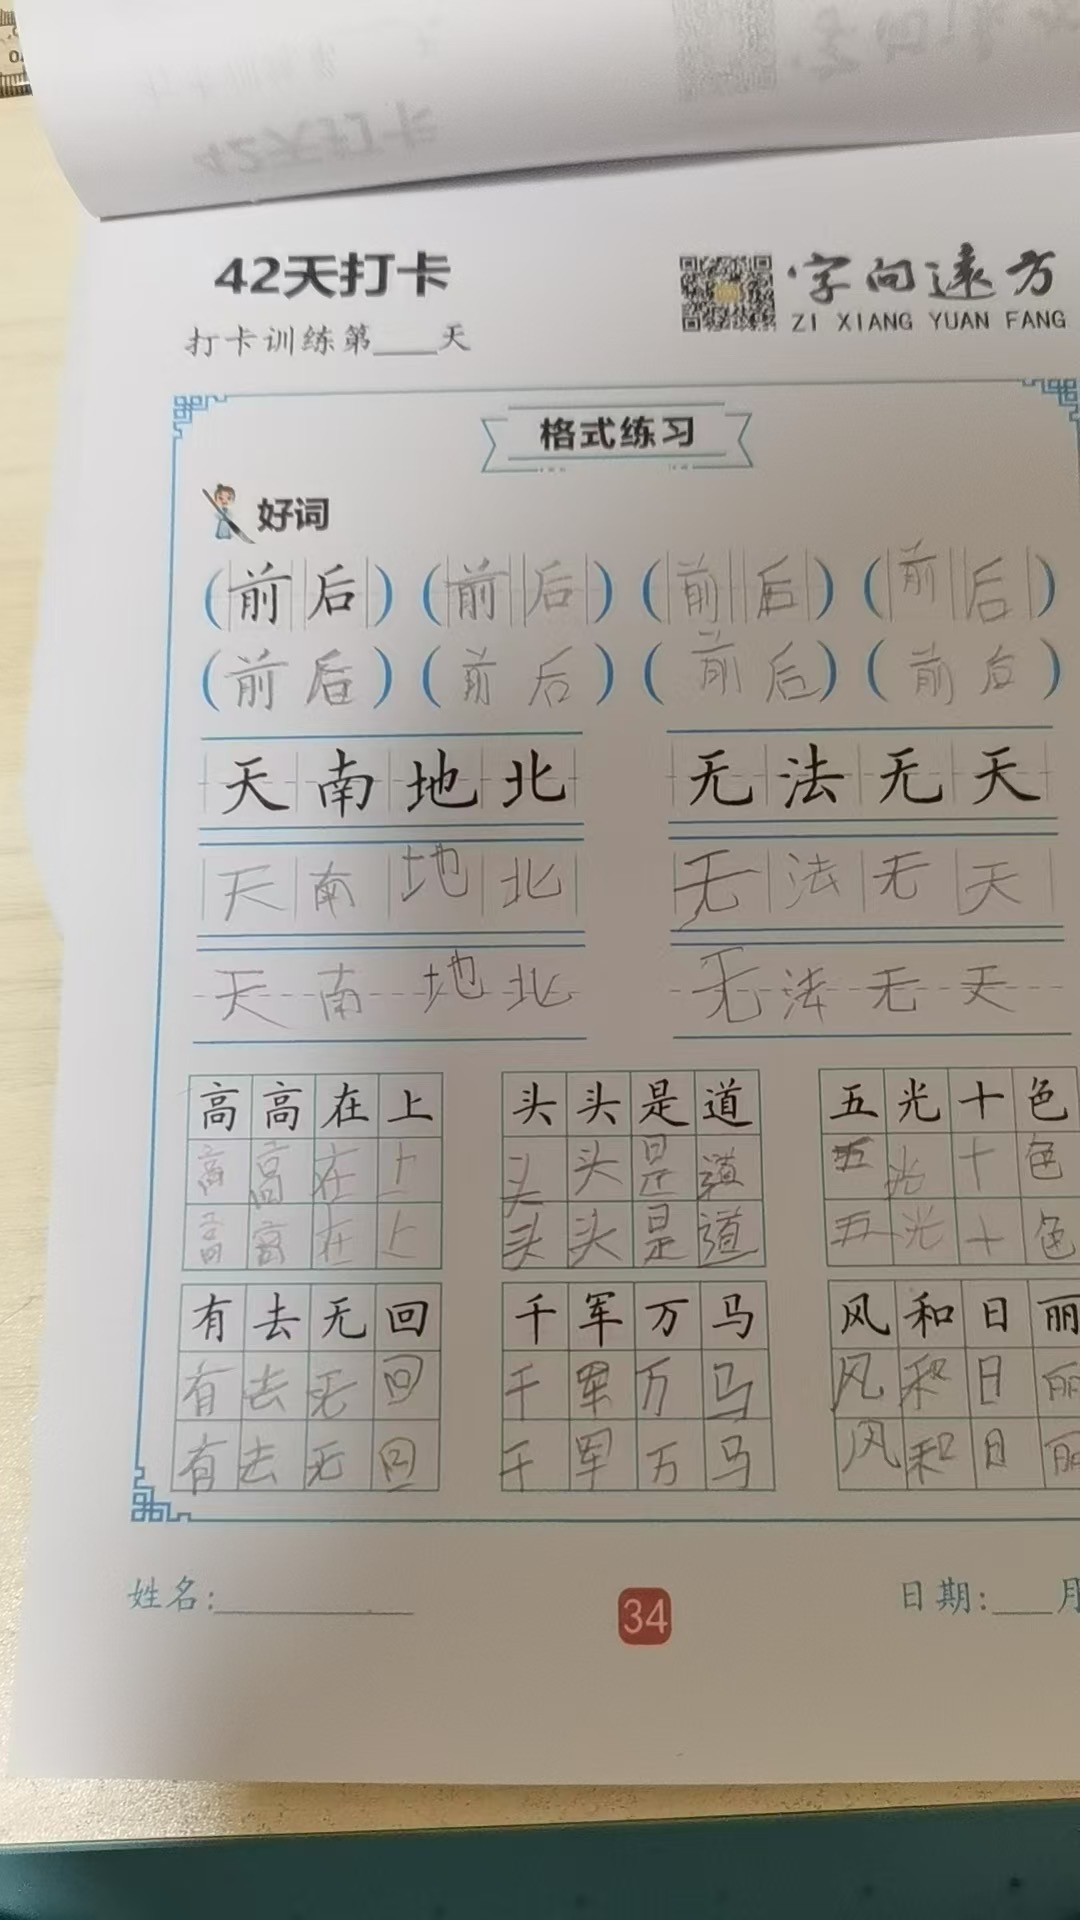 42天打卡
字向远方
ZI XIANG YUAN FANG
打卡训练第___天
格式练习
好词
(前后) (前后) (前后) (前后)
(前后) (前后) (前后) (前后)
天南地北 无法无天
天南地北 无法无天
天南地北 无法无天
高高在上 头头是道 五光十色
高高在上 头头是道 五光十色
高高在上 头头是道 五光十色
有去无回 千军万马 风和日丽
有去无回 千军万马 风和日丽
有去无回 千军万马 风和日丽
姓名:__________ 34 日期:___月